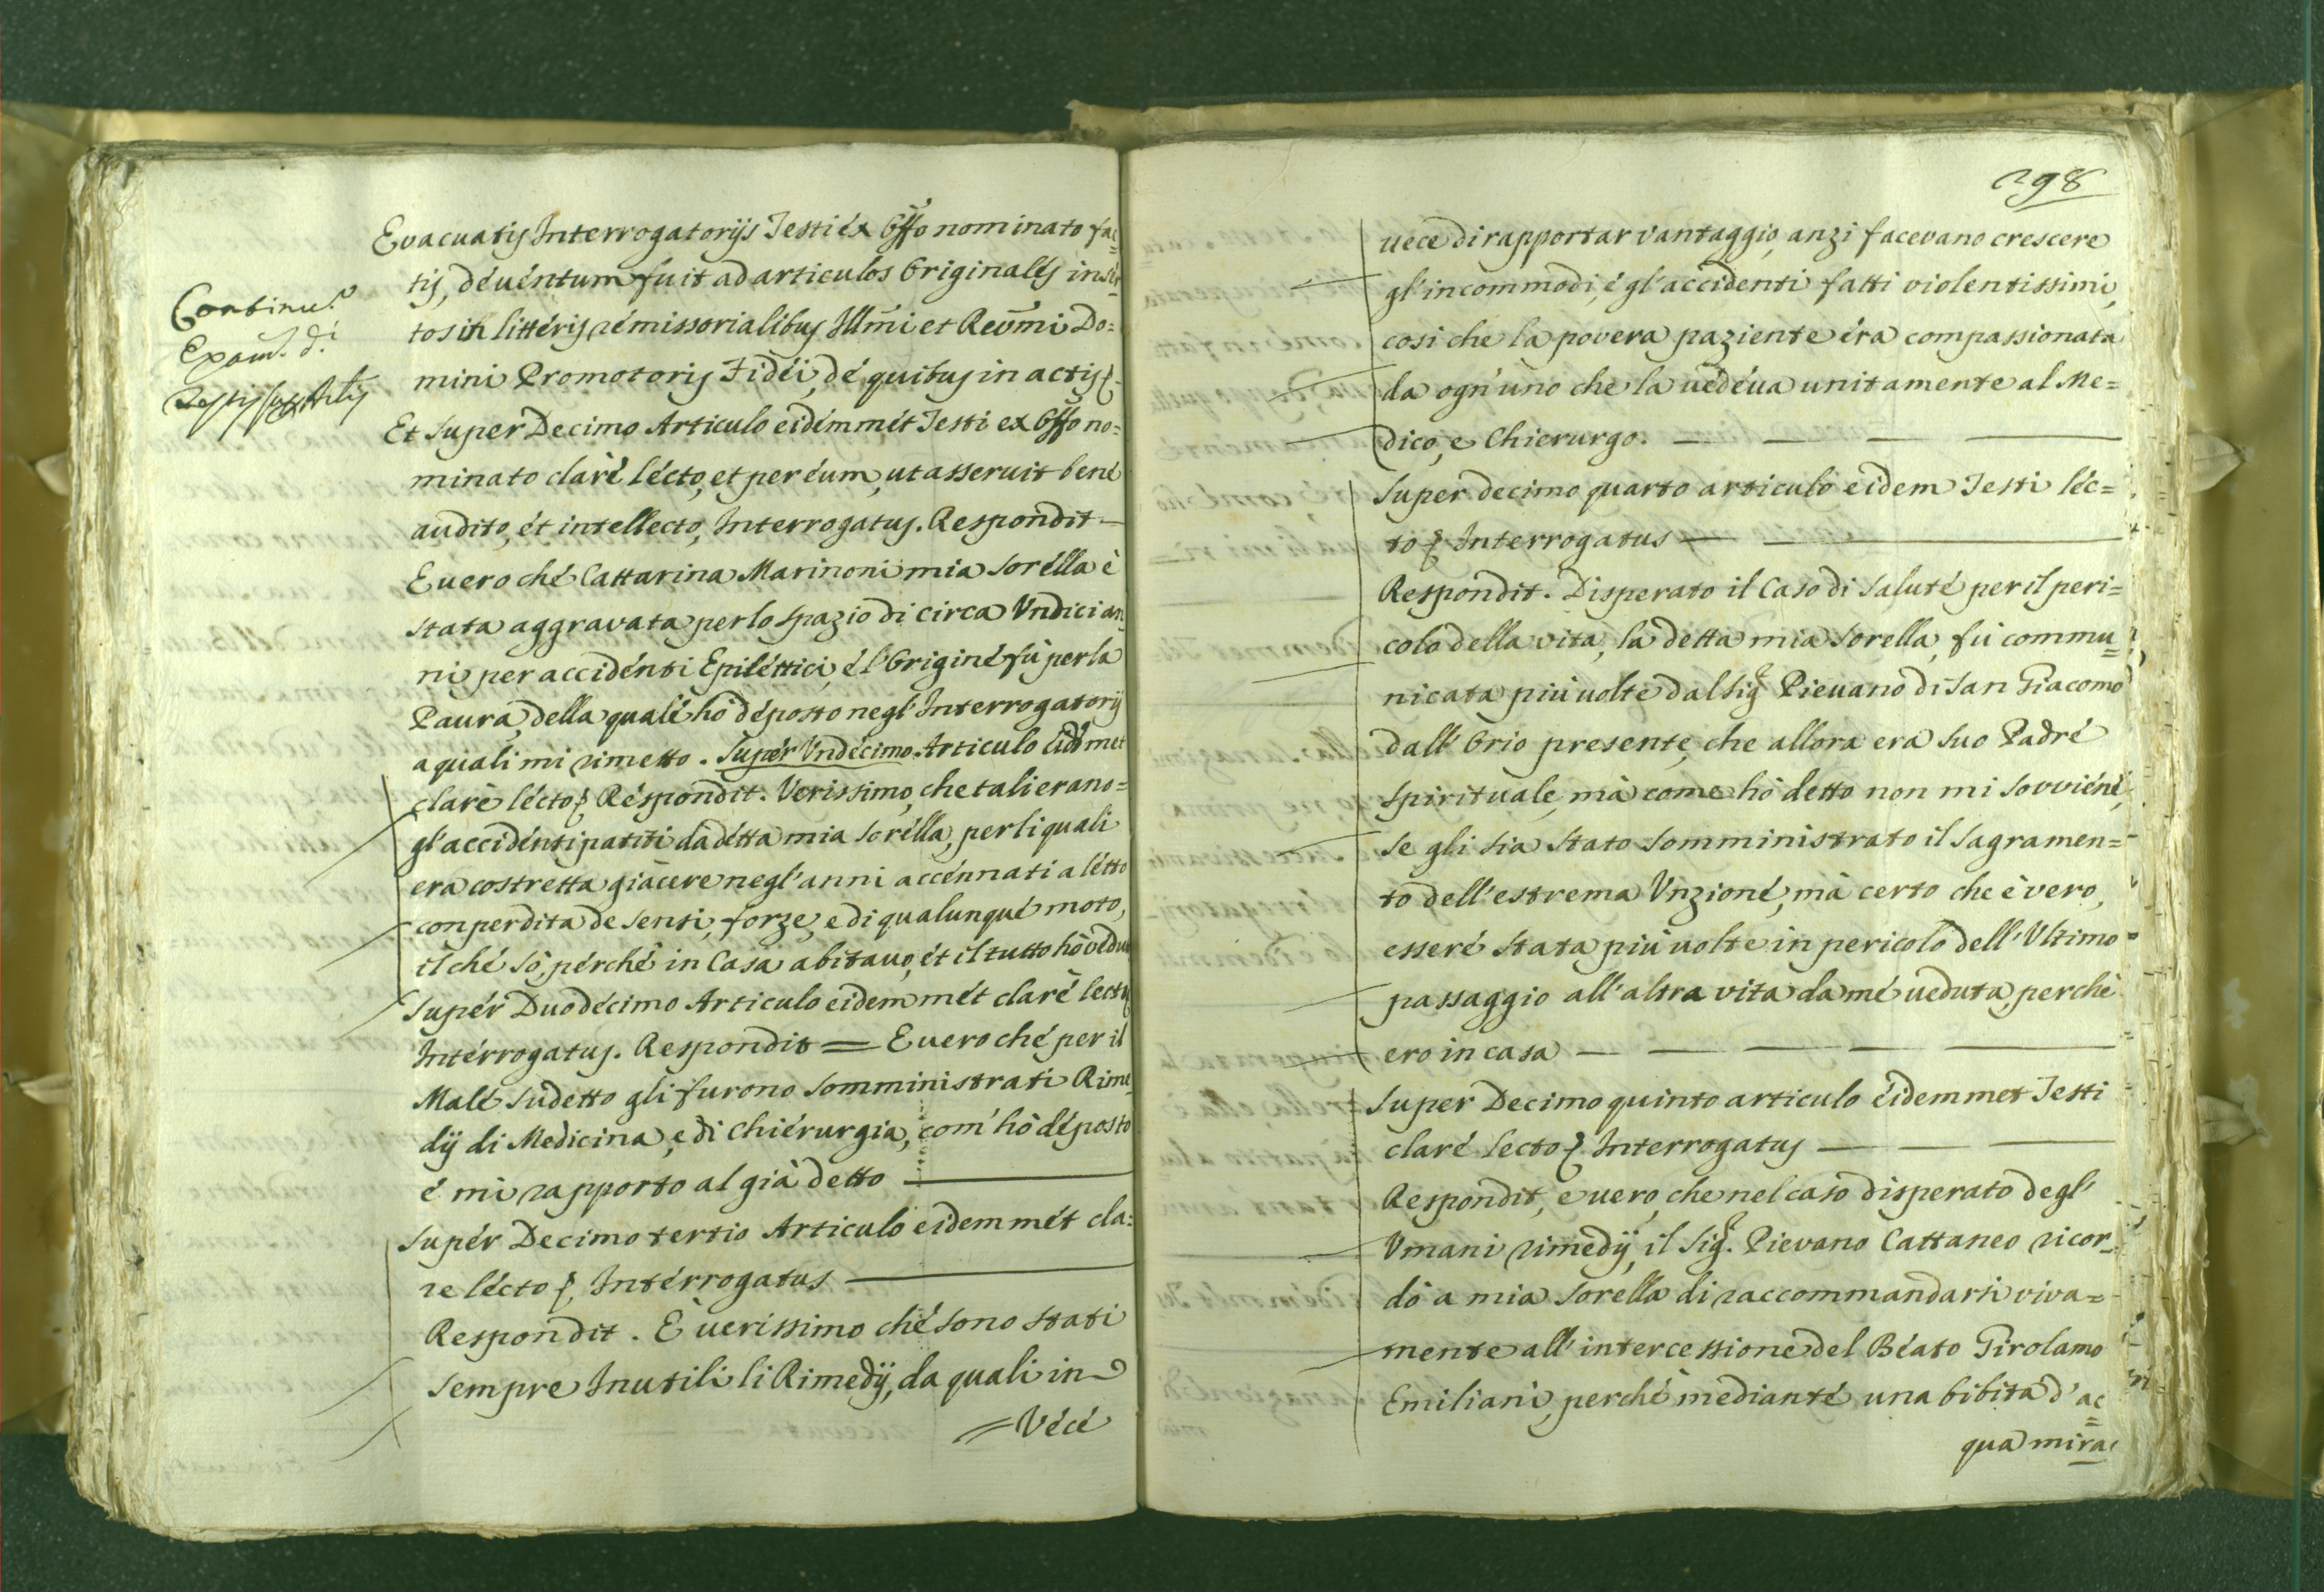 Continu.º
Exam. d.i
Testis sup. Artis
Evacuatis Interrogatorijs Testi ex Offo nominato fac=
tis, deventum fuit ad articulos Originales inser=
tos in litteris remissorialibus Illmi et Revmi Do=
mini Promotoris Fidei, de quibus in actis
Et super Decimo Articulo eidemmet Testi ex Offo no=
minato clarè lecto, et per eum, ut asseruit bene
audito, et intellecto, Interrogatus. Respondit =
E uero che Cattarina Marinoni mia sorella è
stata aggravata per lo spazio di circa Vndici an=
ni per accidenti Epilettici, e l'Origine fù per la
Paura, della quale hò deposto negl'Interrogatorij
a quali mi rimetto. Super Vndecimo Articulo eidmet
clarè lecto Respondit. Verissimo, che tali erano =
gl'accidenti patiti da detta mia sorella, per li quali
era costretta giacere negl'anni accennati a letto
con perdita de sensi, forze, e di qualunque moto,
il che sò, perchè in Casa abitavo, et il tutto hò vedu
Super Duodecimo Articulo eidemmet clarè lecto
Interrogatus. Respondit = E uero che per il
Male sudetto gli furono somministrati Rime=
dij di Medicina, e di Chierurgia, com'hò deposto
e mi rapporto al già detto
Super Decimo tertio Articulo eidemmet cla=
re lecto Interrogatus
Respondit. È uerissimo che sono stati
sempre Inutili li Rimedij, da quali in
=Vece
298
uece di rapportar vantaggio, anzi facevano crescere
gl'incommodi, e gl'accidenti fatti violentissimi,
cosi che la povera paziente era compassionata
da ogn'uno che la uedeua unitamente al Me=
dico, e Chierurgo.
Super decimo quarto articulo eidem Testi lec=
to Interrogatus
Respondit. Disperato il Caso di salute per il peri=
colo della vita, la detta mia sorella, fù commu=
nicata più uolte dal Sigr Pieuano di San Giacomo
dall'Orio presente, che allora era suo Padre
spirituale, mà come hò detto non mi sovviene,
se gli sia stato somministrato il Sagramen=
to dell'estrema Vnzione, mà certo che è vero,
essere stata più uolte in pericolo dell'Vltimo =
passaggio all'altra vita da me ueduta, perchè
ero in casa
Super Decimo quinto articulo eidemmet Testi
clarè lecto Interrogatus
Respondit, e uero, che nel caso disperato degl'
Vmani rimedij, il Sigr. Pievano Cattaneo ricor=
dò a mia sorella di raccommandarsi viva=
mente all'intercessione del Beato Girolamo
Emiliani, perchè mediante una bibita d'ac=
qua mira